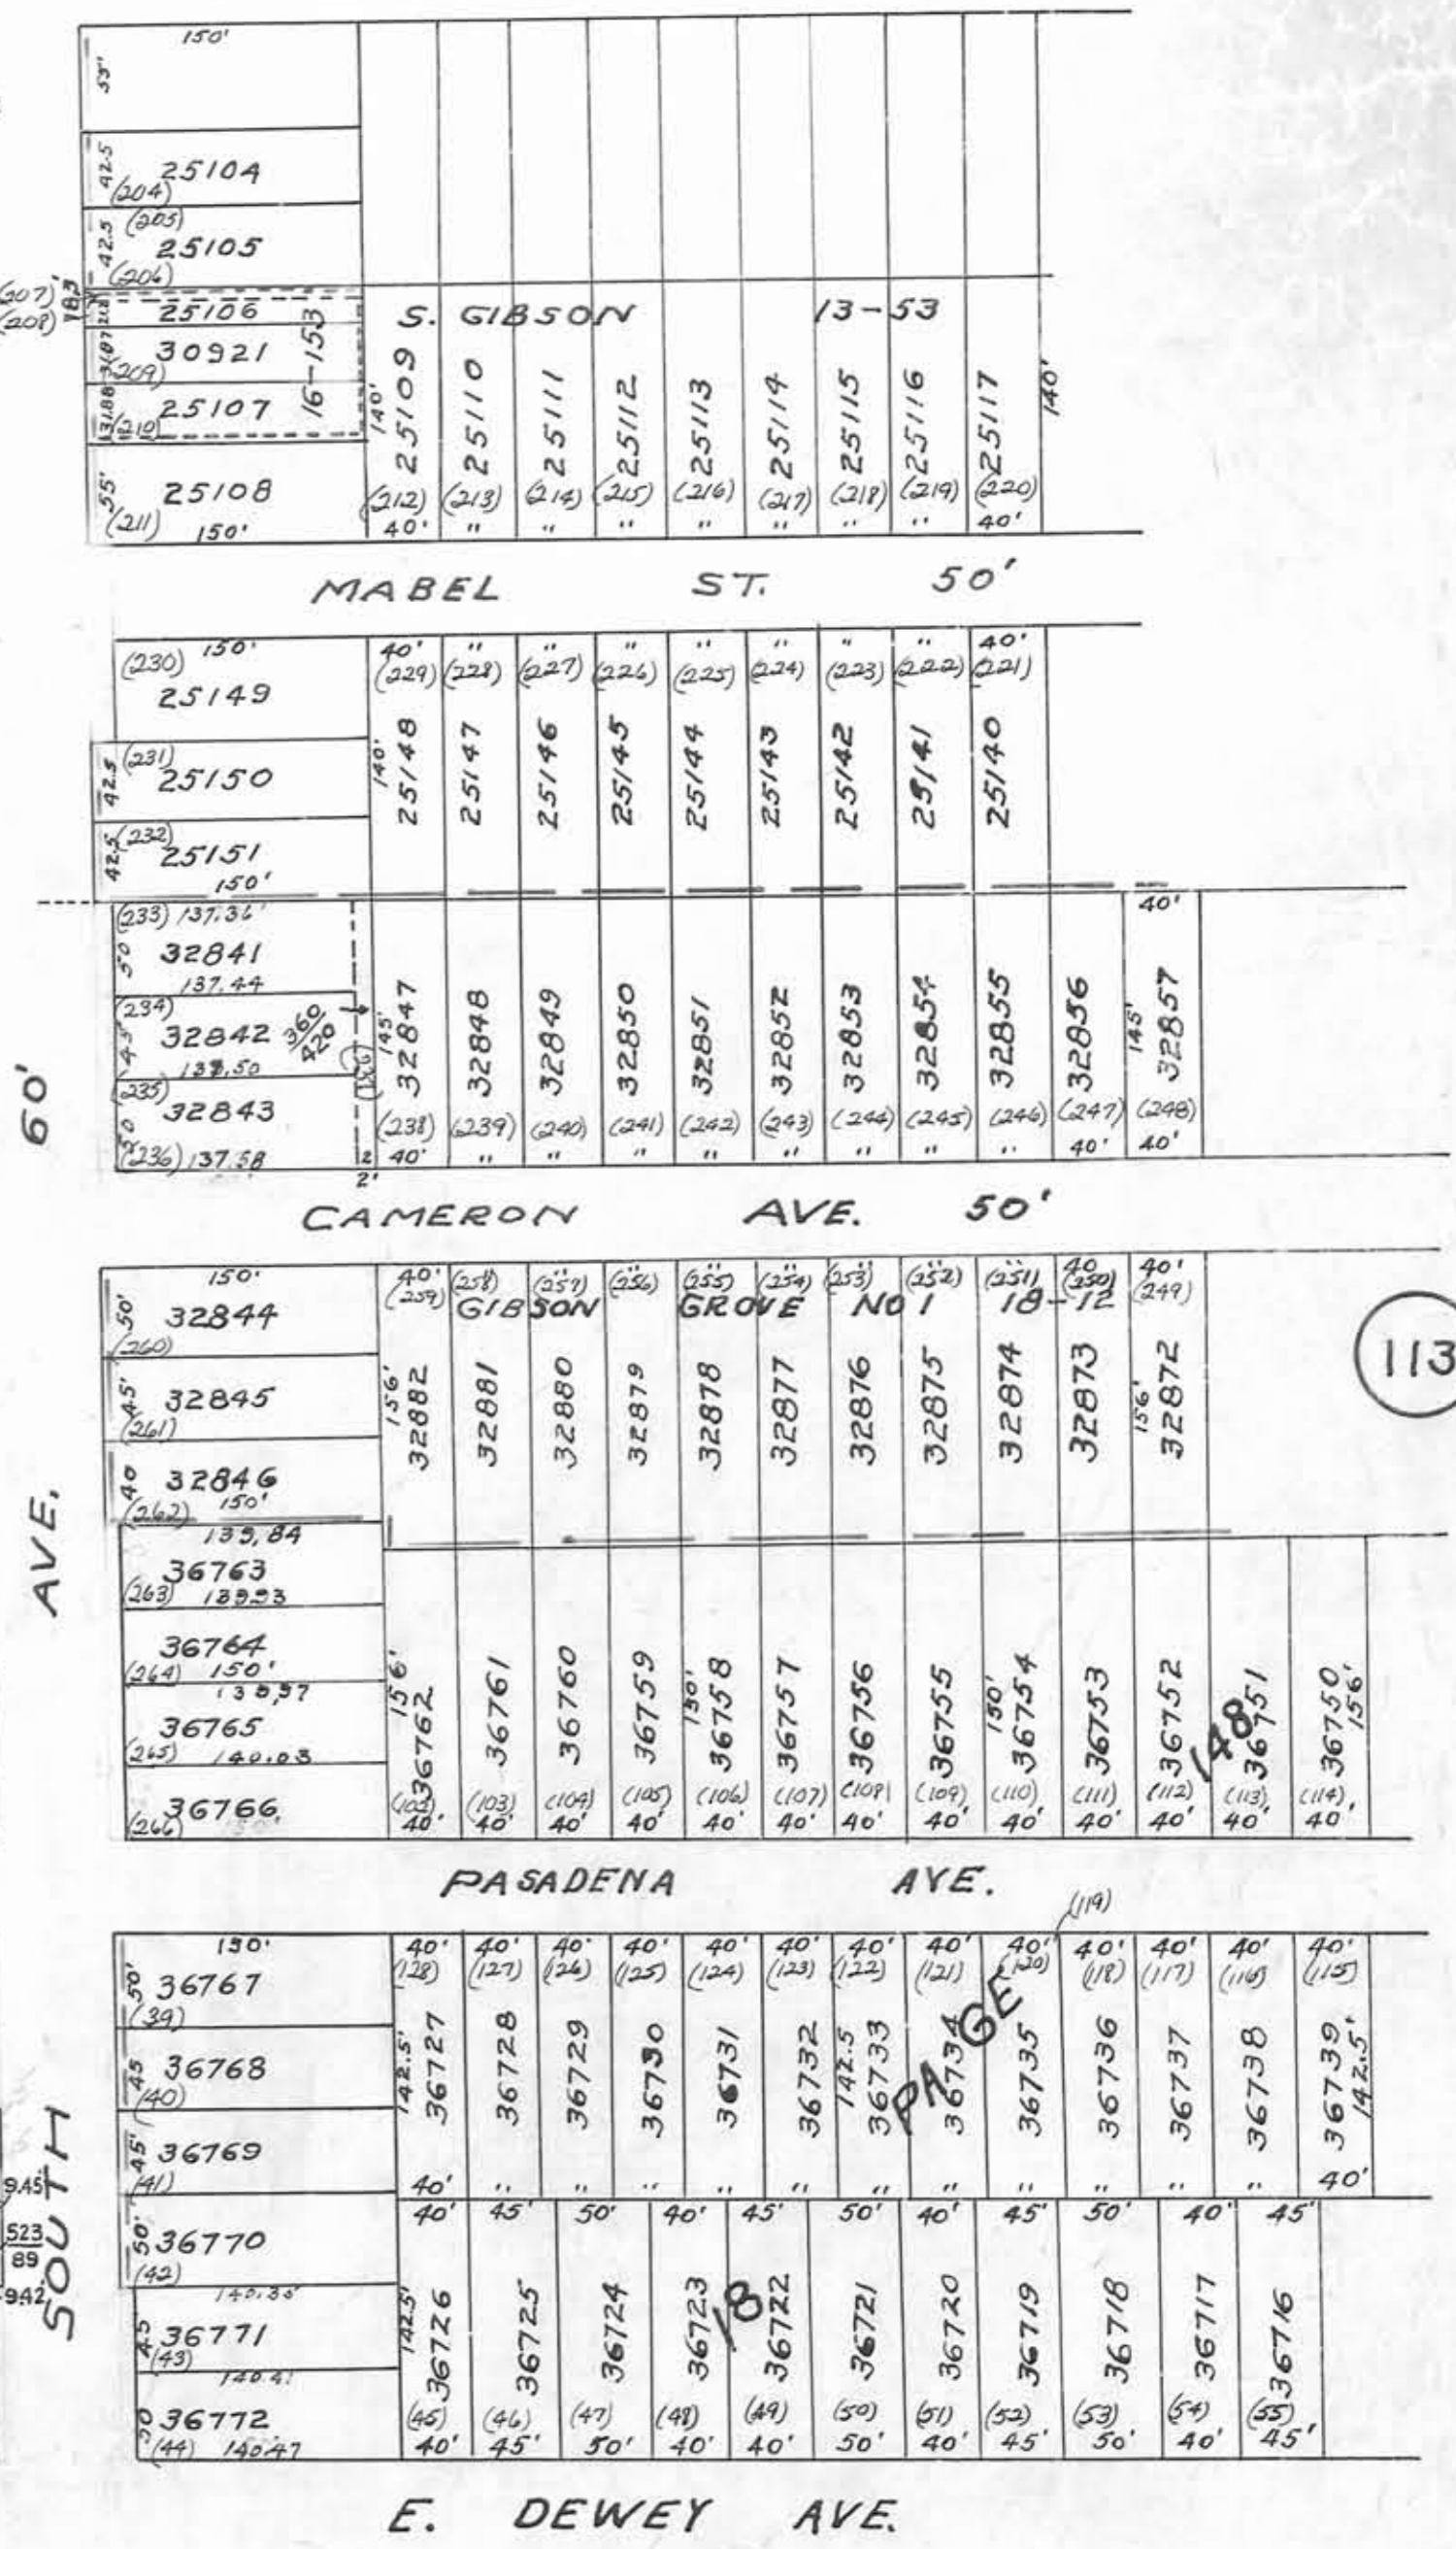 150'
55'
42.5 25104
(204)
42.5 (205)
25105
(206)
(207) 18.3'
(208)
25106
30921
(209)
16-153
31.88 25107
(210)
55' 25108
(211) 150'
S. GIBSON 13-53
140' 140'
25109 25110 25111 25112 25113 25114 25115 25116 25117
(212) (213) (214) (215) (216) (217) (218) (219) (220)
40' " " " " " " " 40'
MABEL ST. 50'
(230) 150'
25149
42.5 (231)
25150
42.5 (232)
25151
150'
40' " " " " " " " 40'
(229) (228) (227) (226) (225) (224) (223) (222) (221)
140'
25148 25147 25146 25145 25144 25143 25142 25141 25140
(233) 137.36'
50 32841
137.44
(234)
45' 32842 360/420
(235)
50 32843
(236) 137.58
(237)
2
2'
40'
145' 145'
32847 32848 32849 32850 32851 32852 32853 32854 32855 32856 32857
(238) (239) (240) (241) (242) (243) (244) (245) (246) (247) (248)
40' " " " " " " " " 40' 40'
60'
CAMERON AVE. 50'
150'
50' 32844
(260)
45' 32845
(261)
40 32846
(262) 150'
40' " " " " " " " " 40 40'
(259) (258) (257) (256) (255) (254) (253) (252) (251) (250) (249)
GIBSON GROVE NO 1 18-12
156' 156'
32882 32881 32880 32879 32878 32877 32876 32875 32874 32873 32872
113
139.84
36763
(263) 139.93
36764
(264) 150'
36765
(265) 140.03
36766
(266)
156' 150' 150' 156'
36762 36761 36760 36759 36758 36757 36756 36755 36754 36753 36752 36751 36750
148
(102) (103) (104) (105) (106) (107) (108) (109) (110) (111) (112) (113) (114)
40' 40' 40' 40' 40' 40' 40' 40' 40' 40' 40' 40' 40'
AVE.
PASADENA AVE.
(119)
150'
50' 36767
(39)
45 36768
(40)
45' 36769
(41)
50' 36770
(42)
140.35
45 36771
(43)
50 36772
(44) 140.47
40' 40' 40' 40' 40' 40' 40' 40' 40' 40' 40' 40' 40'
(128) (127) (126) (125) (124) (123) (122) (121) (120) (118) (117) (116) (115)
142.5' 142.5 142.5'
36727 36728 36729 36730 36731 36732 36733 36734 36735 36736 36737 36738 36739
PAGE
40' " " " " " " " " " " " 40'
40' 45' 50' 40' 45' 50' 40' 45' 50' 40' 45'
142.5'
36726 36725 36724 36723 36722 36721 36720 36719 36718 36717 36716
18
(45) (46) (47) (48) (49) (50) (51) (52) (53) (54) (55)
40' 45' 50' 40' 40' 50' 40' 45' 50' 40' 45'
SOUTH
9.45
523
89
942
E. DEWEY AVE.